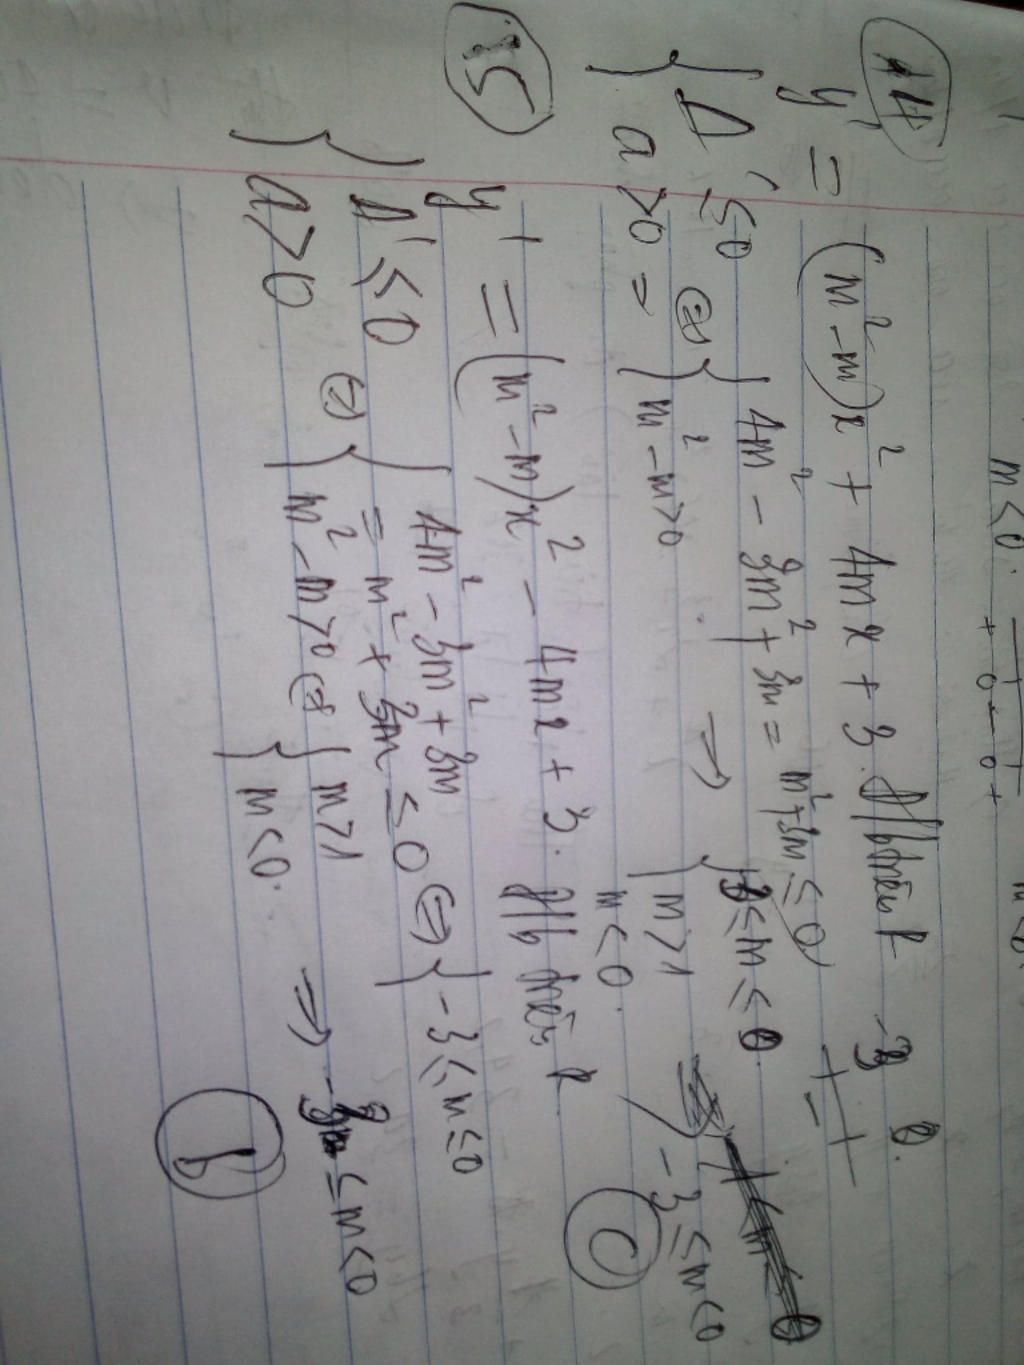 m<0. + 0 - 0 +
14
y' = (m² - m)x² + 4mx + 3. đ/b trên R
-3 0.
+ - +
{ Δ' ≤ 0 ⇔ { 4m² - 3m² + 3m = m² + 3m ≤ 0
a > 0 = { m² - m > 0 ⇒ { -3 ≤ m ≤ 0.
m > 1
m < 0.
⇒ -3 ≤ m < 0
C
15
y' = (m² - m)x² - 4mx + 3. đ/b trên R
{ Δ' ≤ 0 ⇔ { 4m² - 3m² + 3m
= m² + 3m ≤ 0 ⇔ { -3 ≤ m ≤ 0
a > 0 m² - m > 0 ⇔ { m > 1
m < 0. ⇒ -3 ≤ m < 0
b